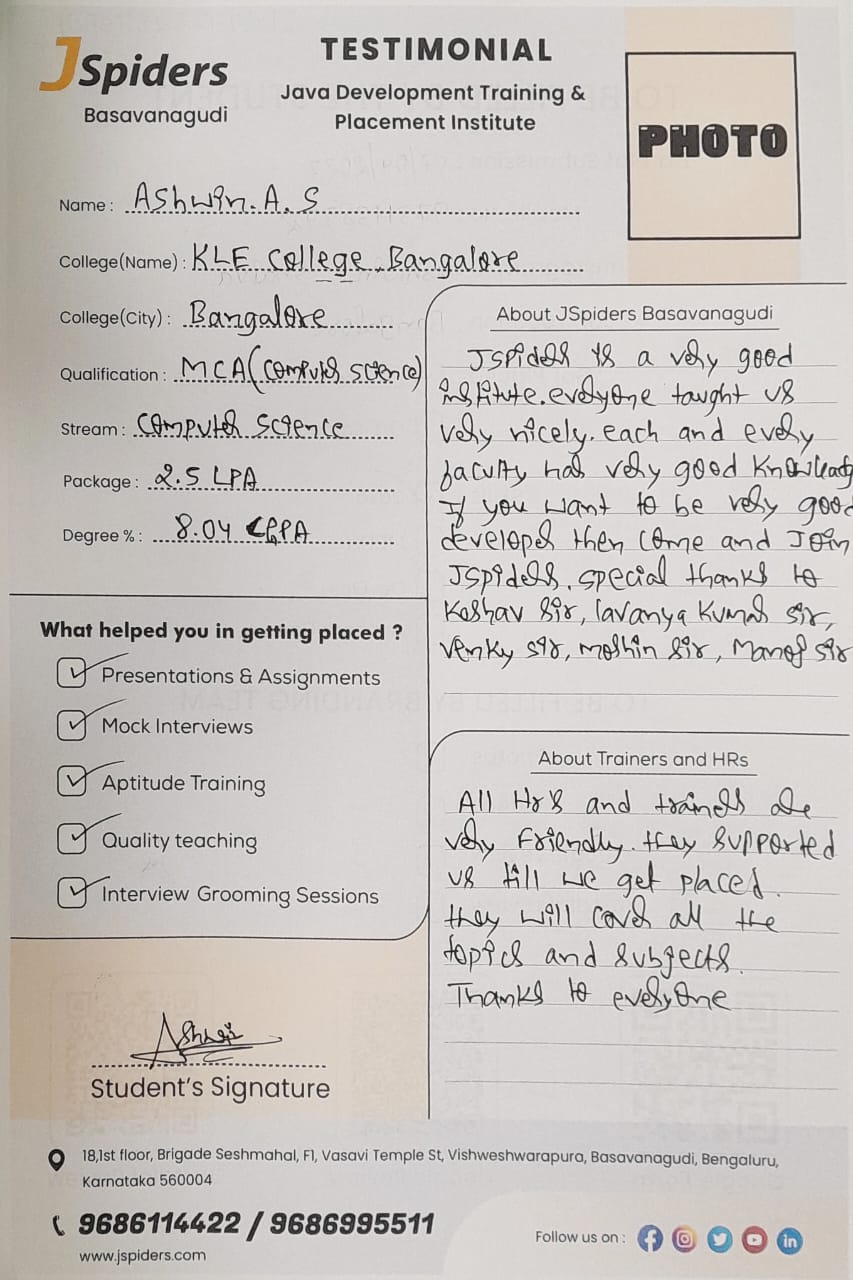 JSpiders
Basavanagudi
TESTIMONIAL
Java Development Training &
Placement Institute
PHOTO
Name : Ashwin. A. S
College(Name) : KLE College, Bangalore
College(City) : Bangalore
Qualification : MCA (Computer science)
Stream : Computer Science
Package : 2.5 LPA
Degree % : 8.04 CGPA
What helped you in getting placed ?
Presentations & Assignments
Mock Interviews
Aptitude Training
Quality teaching
Interview Grooming Sessions
Student's Signature
About JSpiders Basavanagudi
JSpiders is a very good
institute. everyone taught us
very nicely. each and every
faculty has very good knowledg
If you want to be very good
developer then come and Join
JSpiders. special thanks to
Keshav sir, lavanya kumar sir,
Venky sir, moshin sir, Manoj sir
About Trainers and HRs
All Hr's and trainers are
very Friendly. they supported
us till we get placed.
they will cover all the
topics and subjects.
Thanks to everyone
18,1st floor, Brigade Seshmahal, F1, Vasavi Temple St, Vishweshwarapura, Basavanagudi, Bengaluru,
Karnataka 560004
9686114422 / 9686995511
www.jspiders.com
Follow us on :